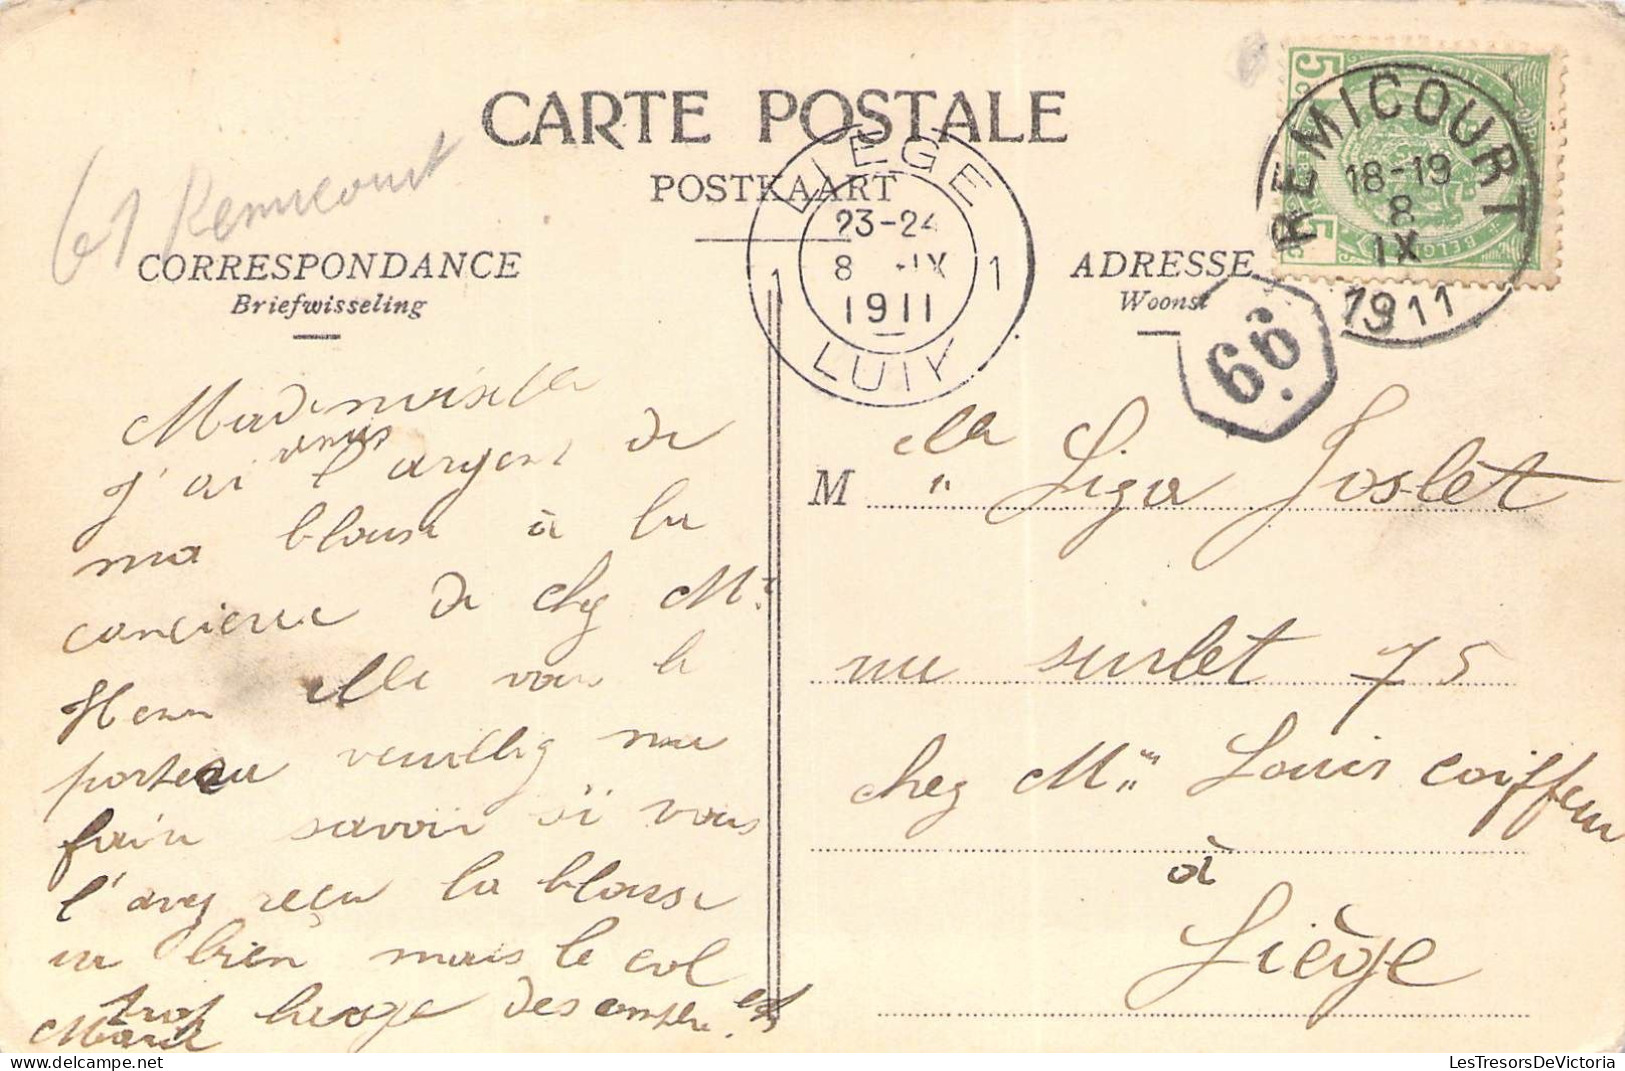 CARTE POSTALE
POSTKAART
61 Remicourt
CORRESPONDANCE
Briefwisseling
ADRESSE
Woonst
5c
BELGIQUE
5c
REMICOURT
18-19
8
IX
1911
LIEGE
23-24
8 -IX
1911
1 1
LUIK
66
Mademoiselle
J'ai remis l'argent de
ma blouse à la
concierre de chez Mr
Henri elle vous le
portera veuillez me
faire savoir si vous
l'avez reçu la blouse
va bien mais le col est
trop large des compli
Marie
M elle Liza Joslet
rue surlet 75
chez Mr Louis coiffeur
à
Liège
LesTresorsDeVictoria.com